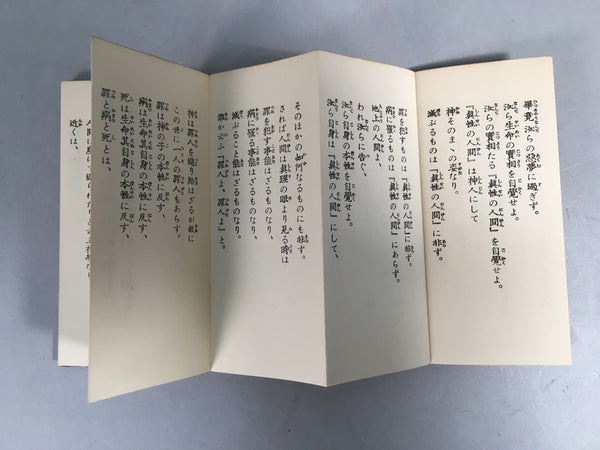 畢竟汝らの惡夢に過ぎず。
汝ら生命の實相を自覺せよ。
汝らの實相たる『眞性の人間』を自覺せよ。
『眞性の人間』は神人にして
神そのまゝの姿なり。
滅ぶるものは『眞性の人間』に非ず。
罪を犯すものは『眞性の人間』に非ず。
病に罹るものは『眞性の人間』にあらず。
地上の人間よ、
われ汝らに告ぐ、
汝ら自身の本性を自覺せよ。
汝ら自身は『眞性の人間』にして、
そのほかの如何なるものにも非ず。
されば人間は眞理の眼より見る時は
罪を犯す事能はざるものなり、
病に罹る事能はざるものなり、
滅ぶること能はざるものなり。
誰か云ふ『罪人よ、罪人よ』と。
神は罪人を造り給はざるが故に
この世に一人の罪人もあらず。
罪は神の子の本性に反す、
病は生命其自身の本性に反す、
死は生命其自身の本性に反す、
罪と病と死とは、